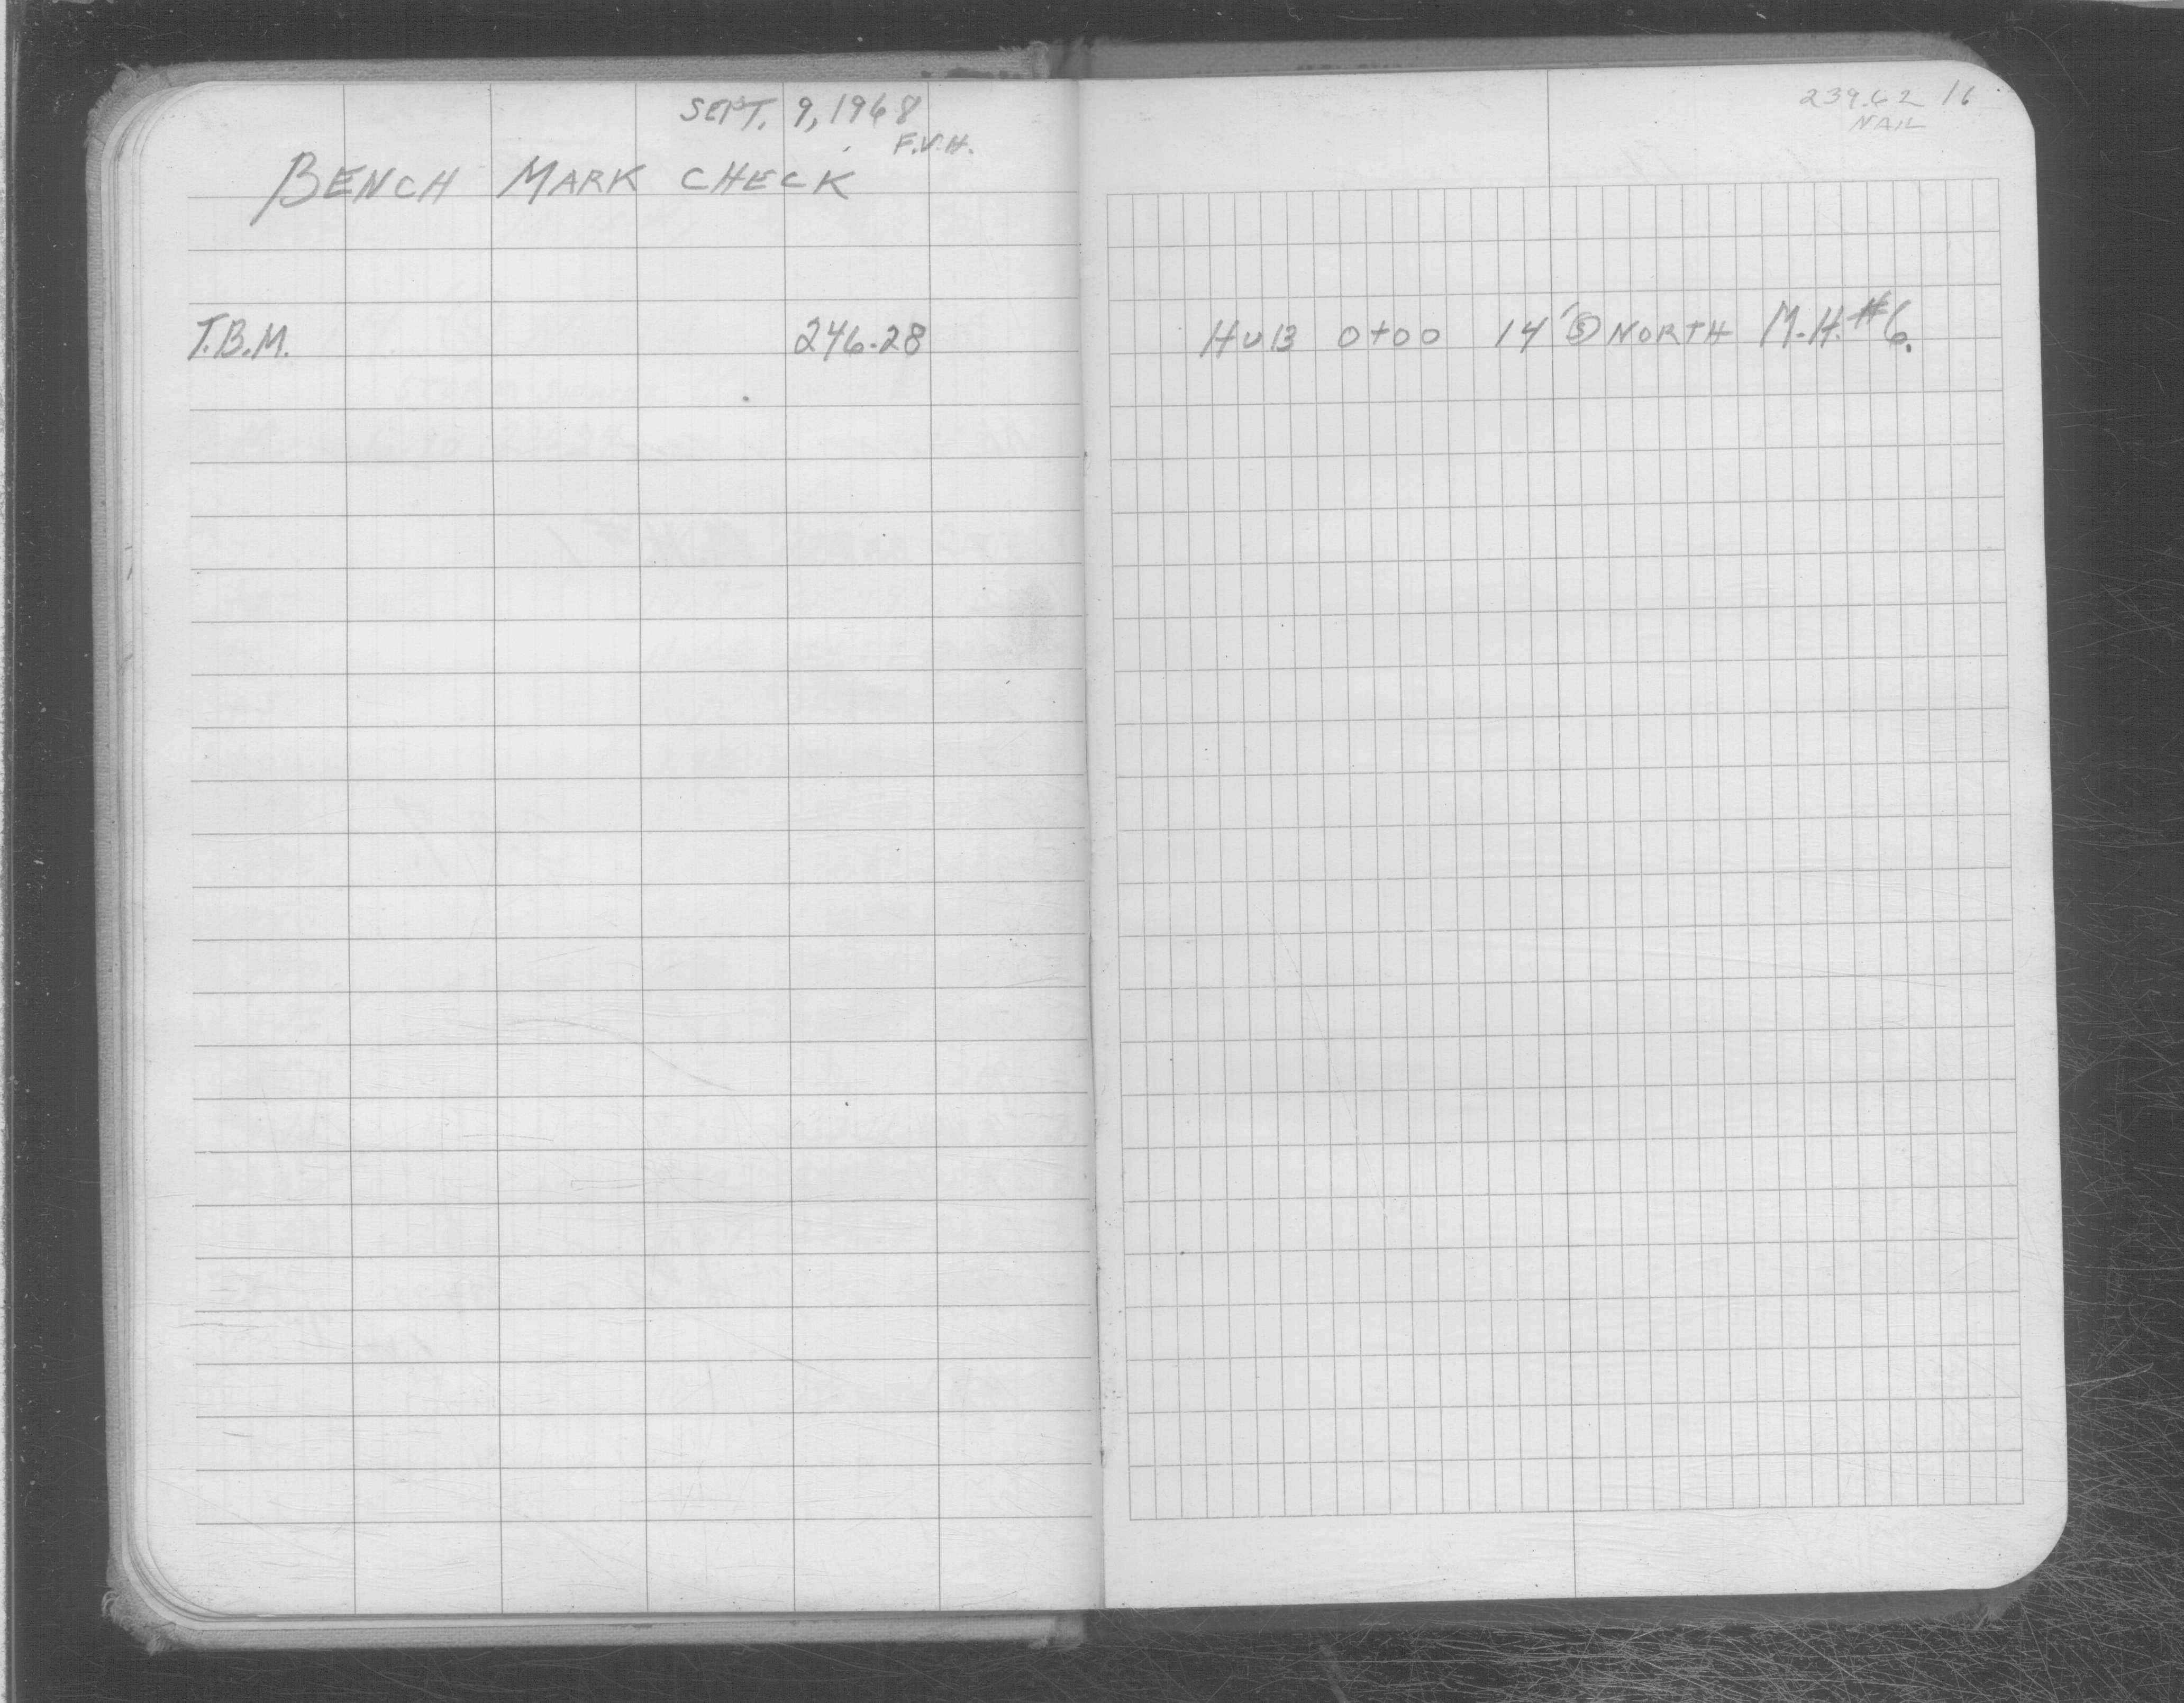 SEPT. 9, 1968
F.V.H.
BENCH MARK CHECK
T.B.M. 246.28
239.62 16
NAIL
HUB 0+00 14' NORTH M.H. #6.